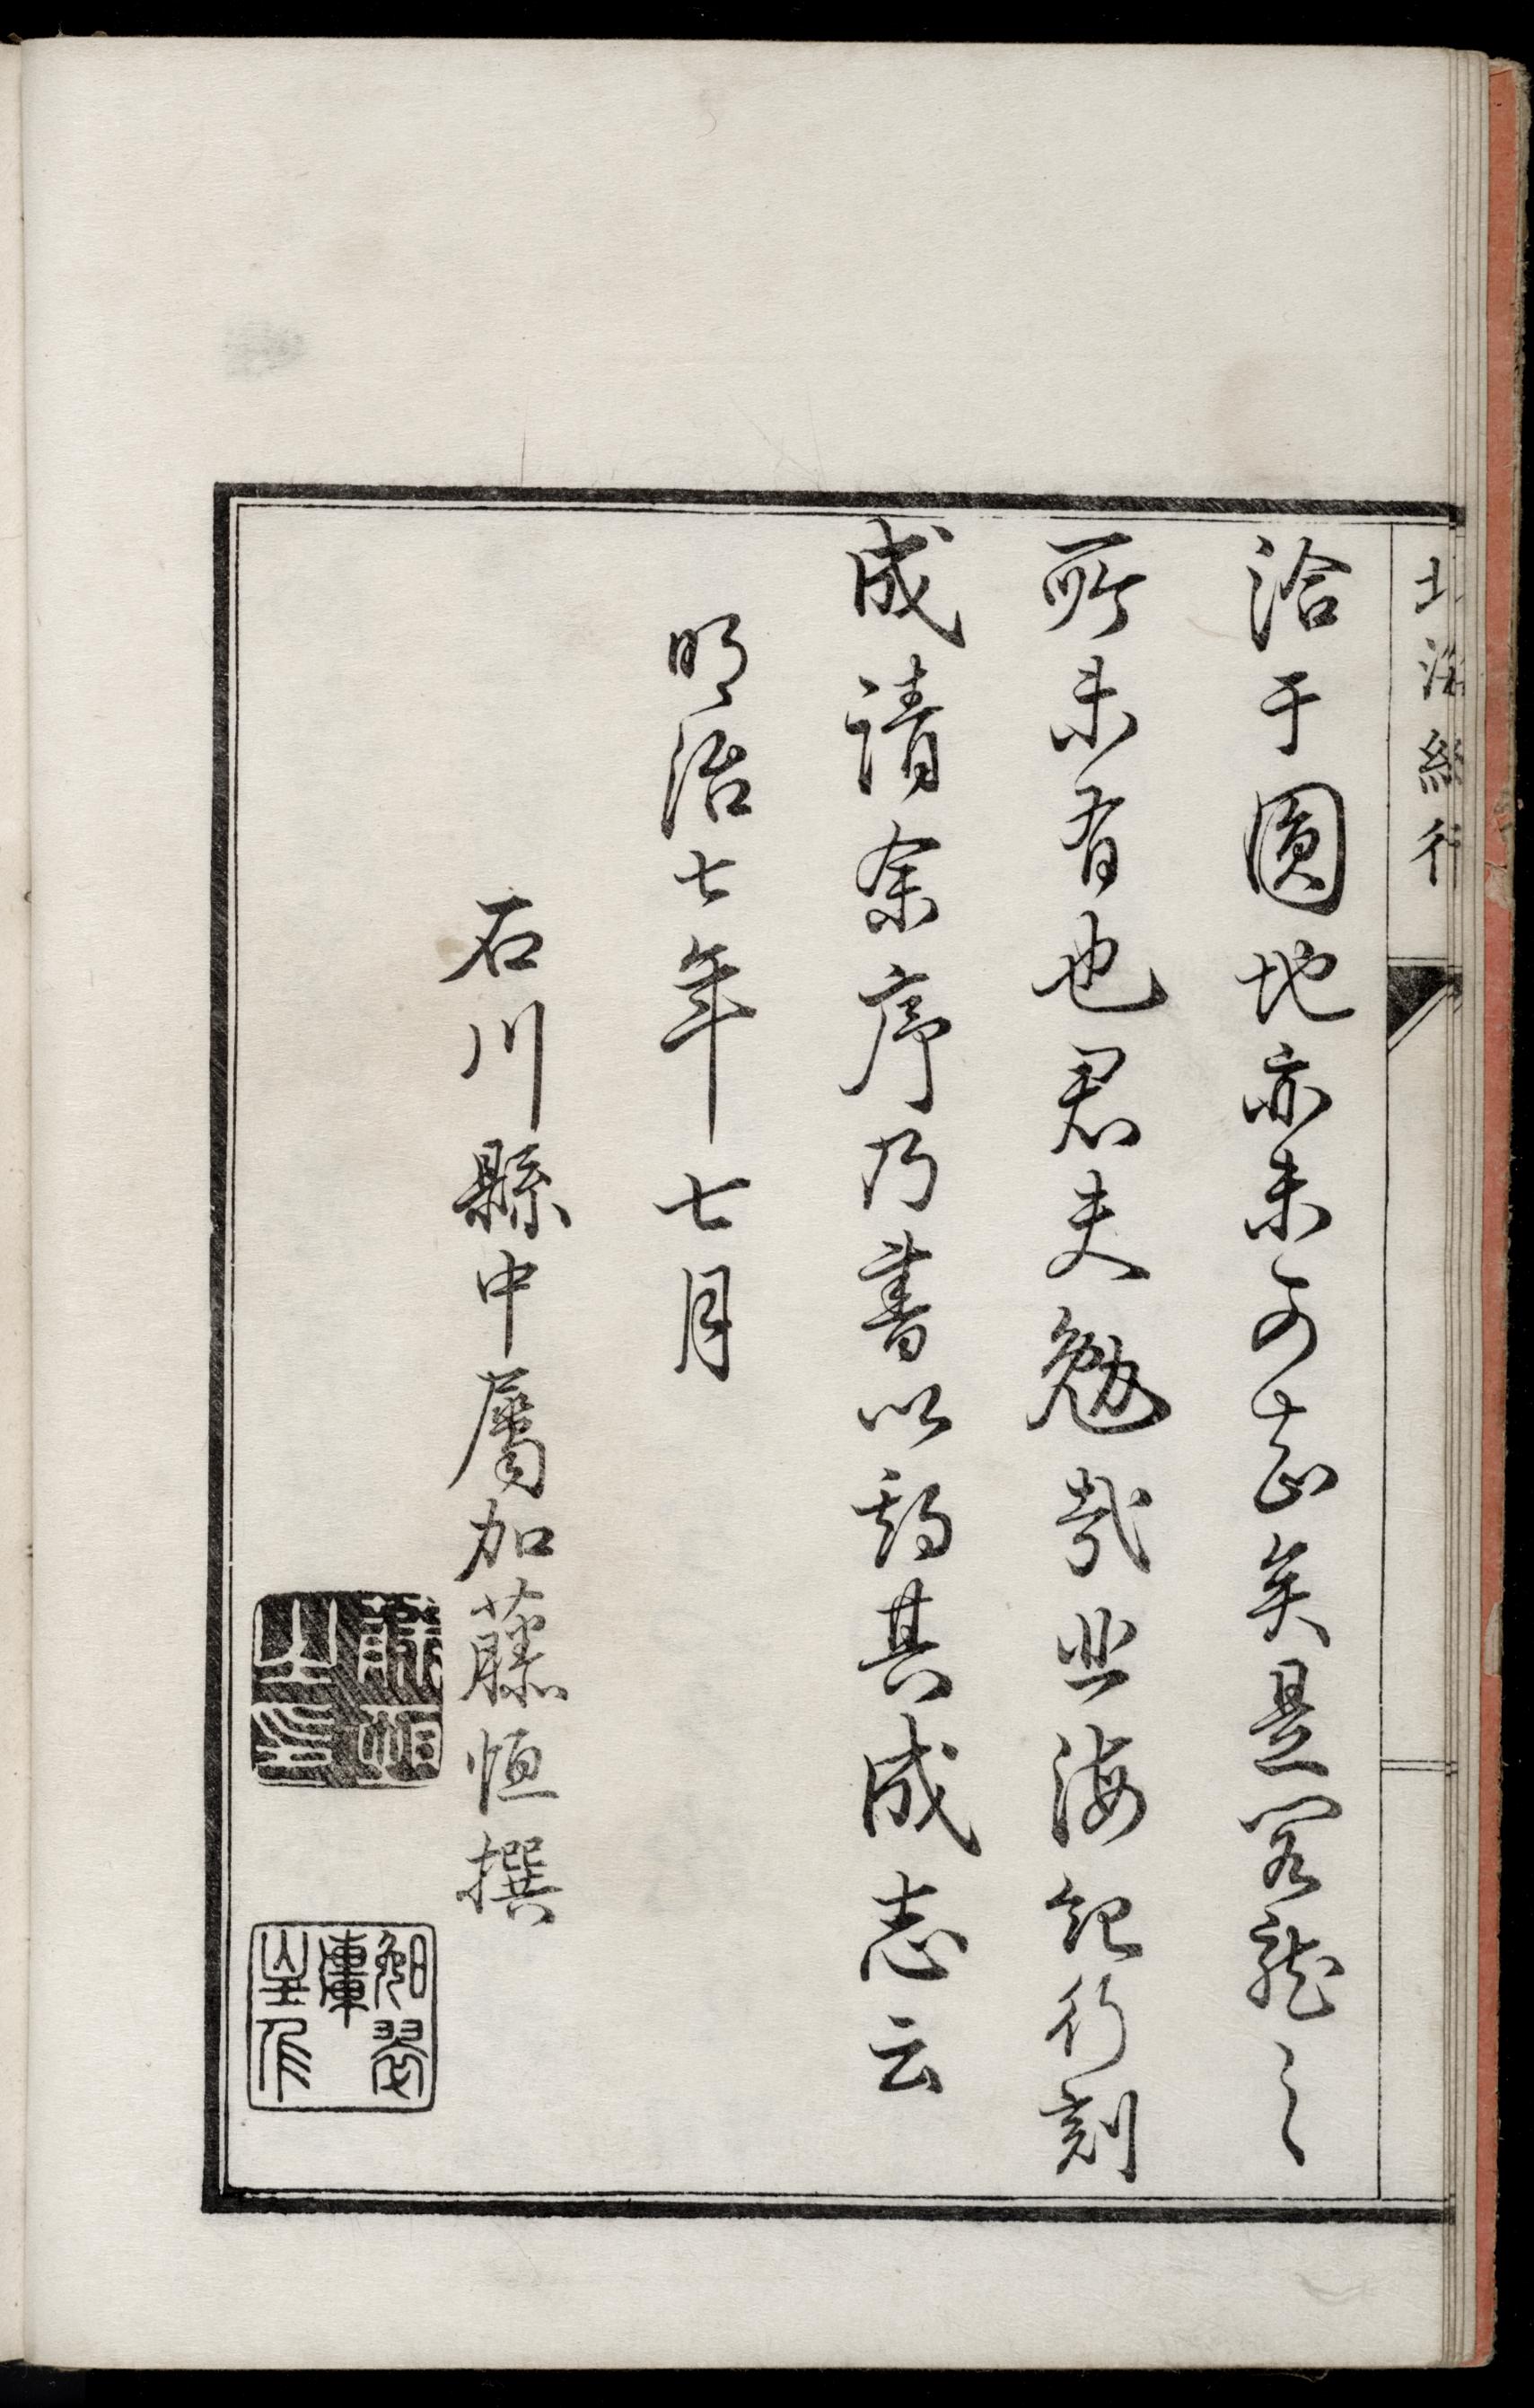 北海紀行
洽于圓地亦未可知矣是龍之
所未有也君夫勉哉北海紀行刻
成請余序乃書以其成志云
明治七年七月
石川縣中屬加藤恒撰
藤恒之印